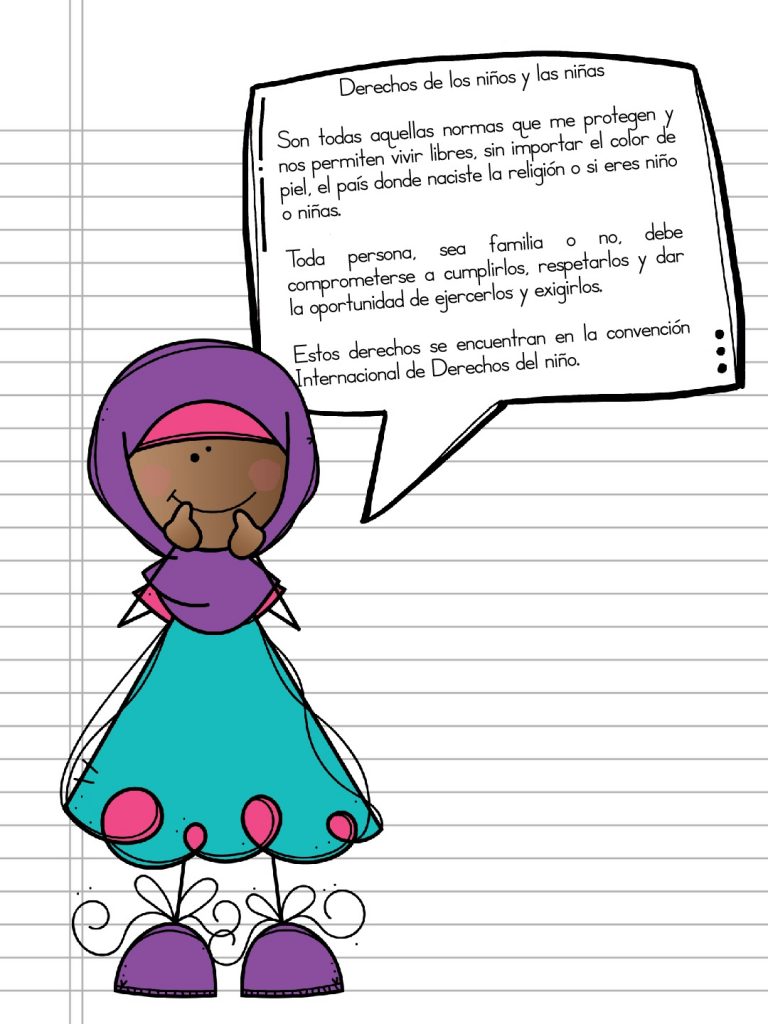 Derechos de los niños y las niñas
Son todas aquellas normas que me protegen y
nos permiten vivir libres, sin importar el color de
piel, el país donde naciste la religión o si eres niño
o niñas.
Toda persona, sea familia o no, debe
comprometerse a cumplirlos, respetarlos y dar
la oportunidad de ejercerlos y exigirlos.
Estos derechos se encuentran en la convención
Internacional de Derechos del niño.